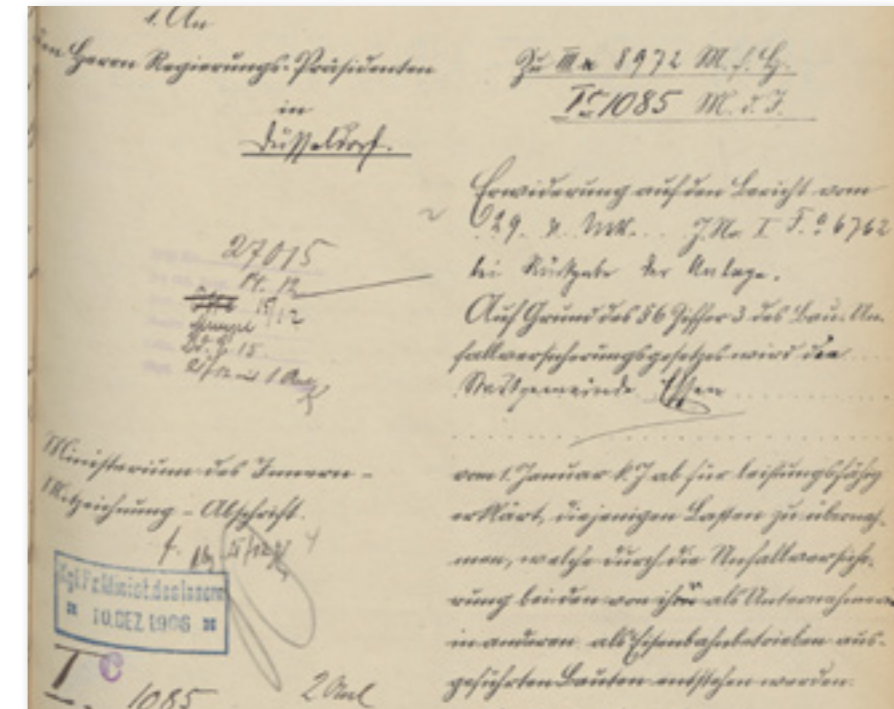 1. An
den Herrn Regierungs-Präsidenten
in
Düsseldorf.
27015
15/12
Ministerium des Innern -
Mitzeichnung - Abschrift.
Kgl. Pr. Minist. des Innern
10. DEZ 1906
I C 1085
2 Anl
Zu III a 8972 M. f. H.
I c 1085 M. d. I.
Erwiderung auf den Bericht vom
29. v. Mts. J. No I F. 6762
bei Rückgabe der Anlage.
Auf Grund des §6 Ziffer 3 des Bau-Un-
fallversicherungsgesetzes wird die
Stadtgemeinde Essen
vom 1. Januar k. J ab für leistungsfähig
erklärt, diejenigen Lasten zu überneh-
men, welche durch die Unfallversiche-
rung bei den von ihr als Unternehmer
in anderen als Eisenbahnbetrieben aus-
geführten Bauten entstehen werden.